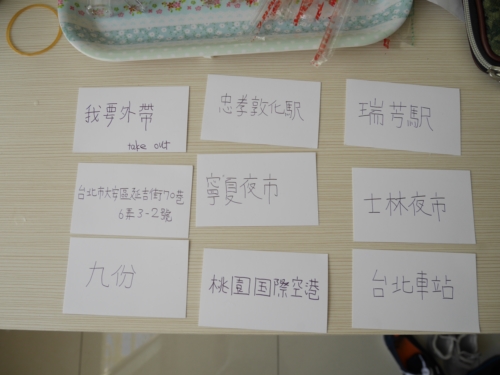 我要外帶
take out
忠孝敦化駅
瑞芳駅
台北市大安區延吉街70巷
6弄3-2號
寧夏夜市
士林夜市
九份
桃園国際空港
台北車站